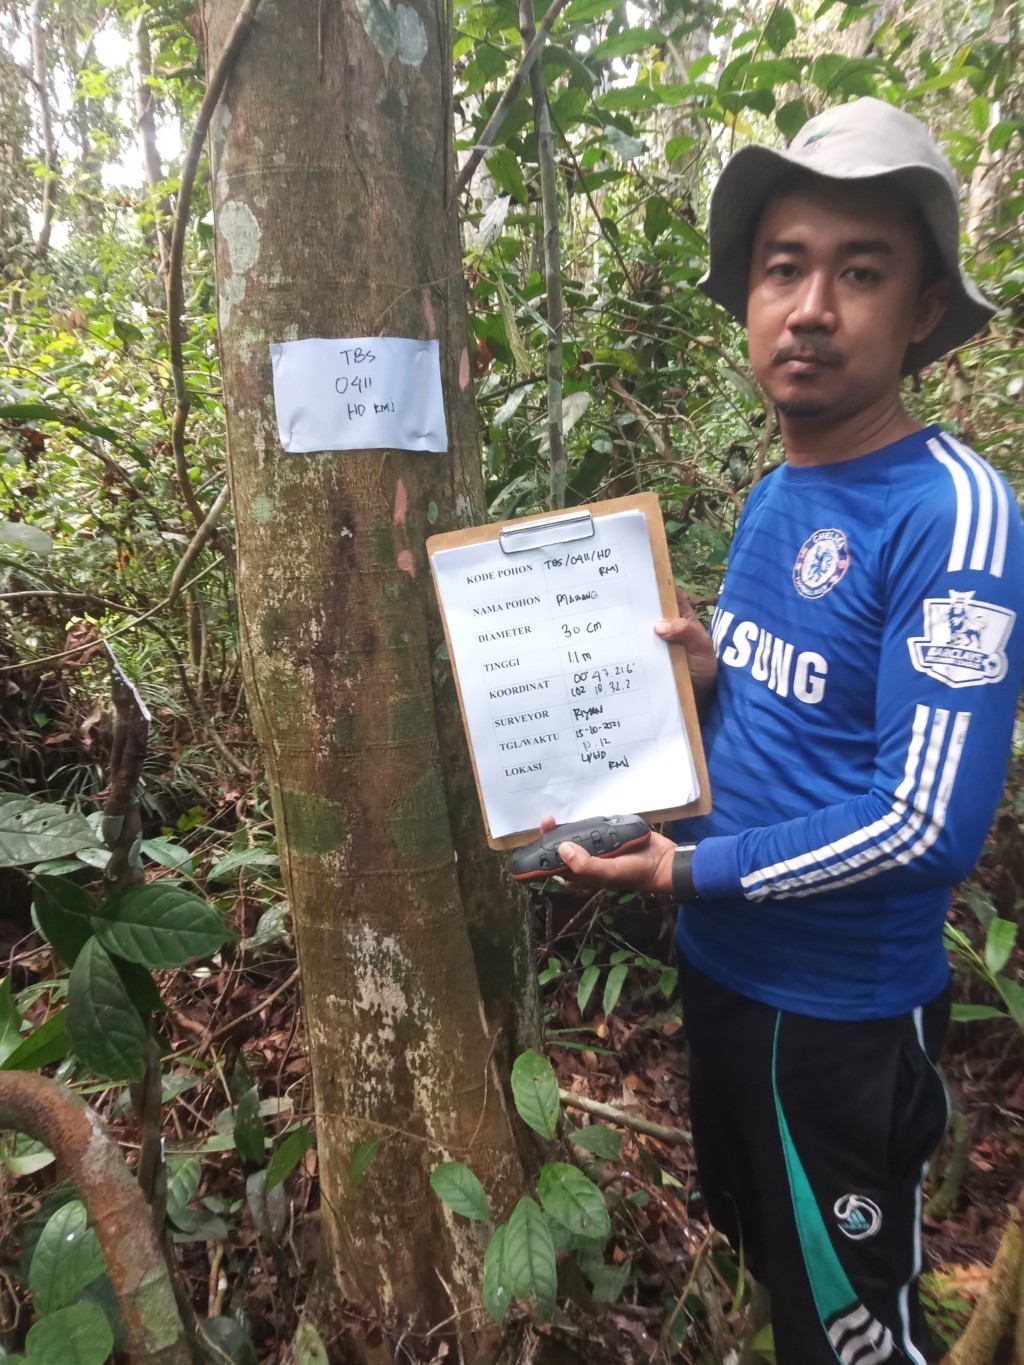 TBS
0411
HD RMJ
KODE POHON TBS/0411/HD
RMJ
NAMA POHON
DIAMETER 30 cm
TINGGI 11 m
KOORDINAT 00 47.216'
102 18.32.2
SURVEYOR RIYAN
TGL/WAKTU 15-10-2021
10.12
LOKASI LPHD
RMJ
CHELSEA
FOOTBALL CLUB
SAMSUNG
BARCLAYS